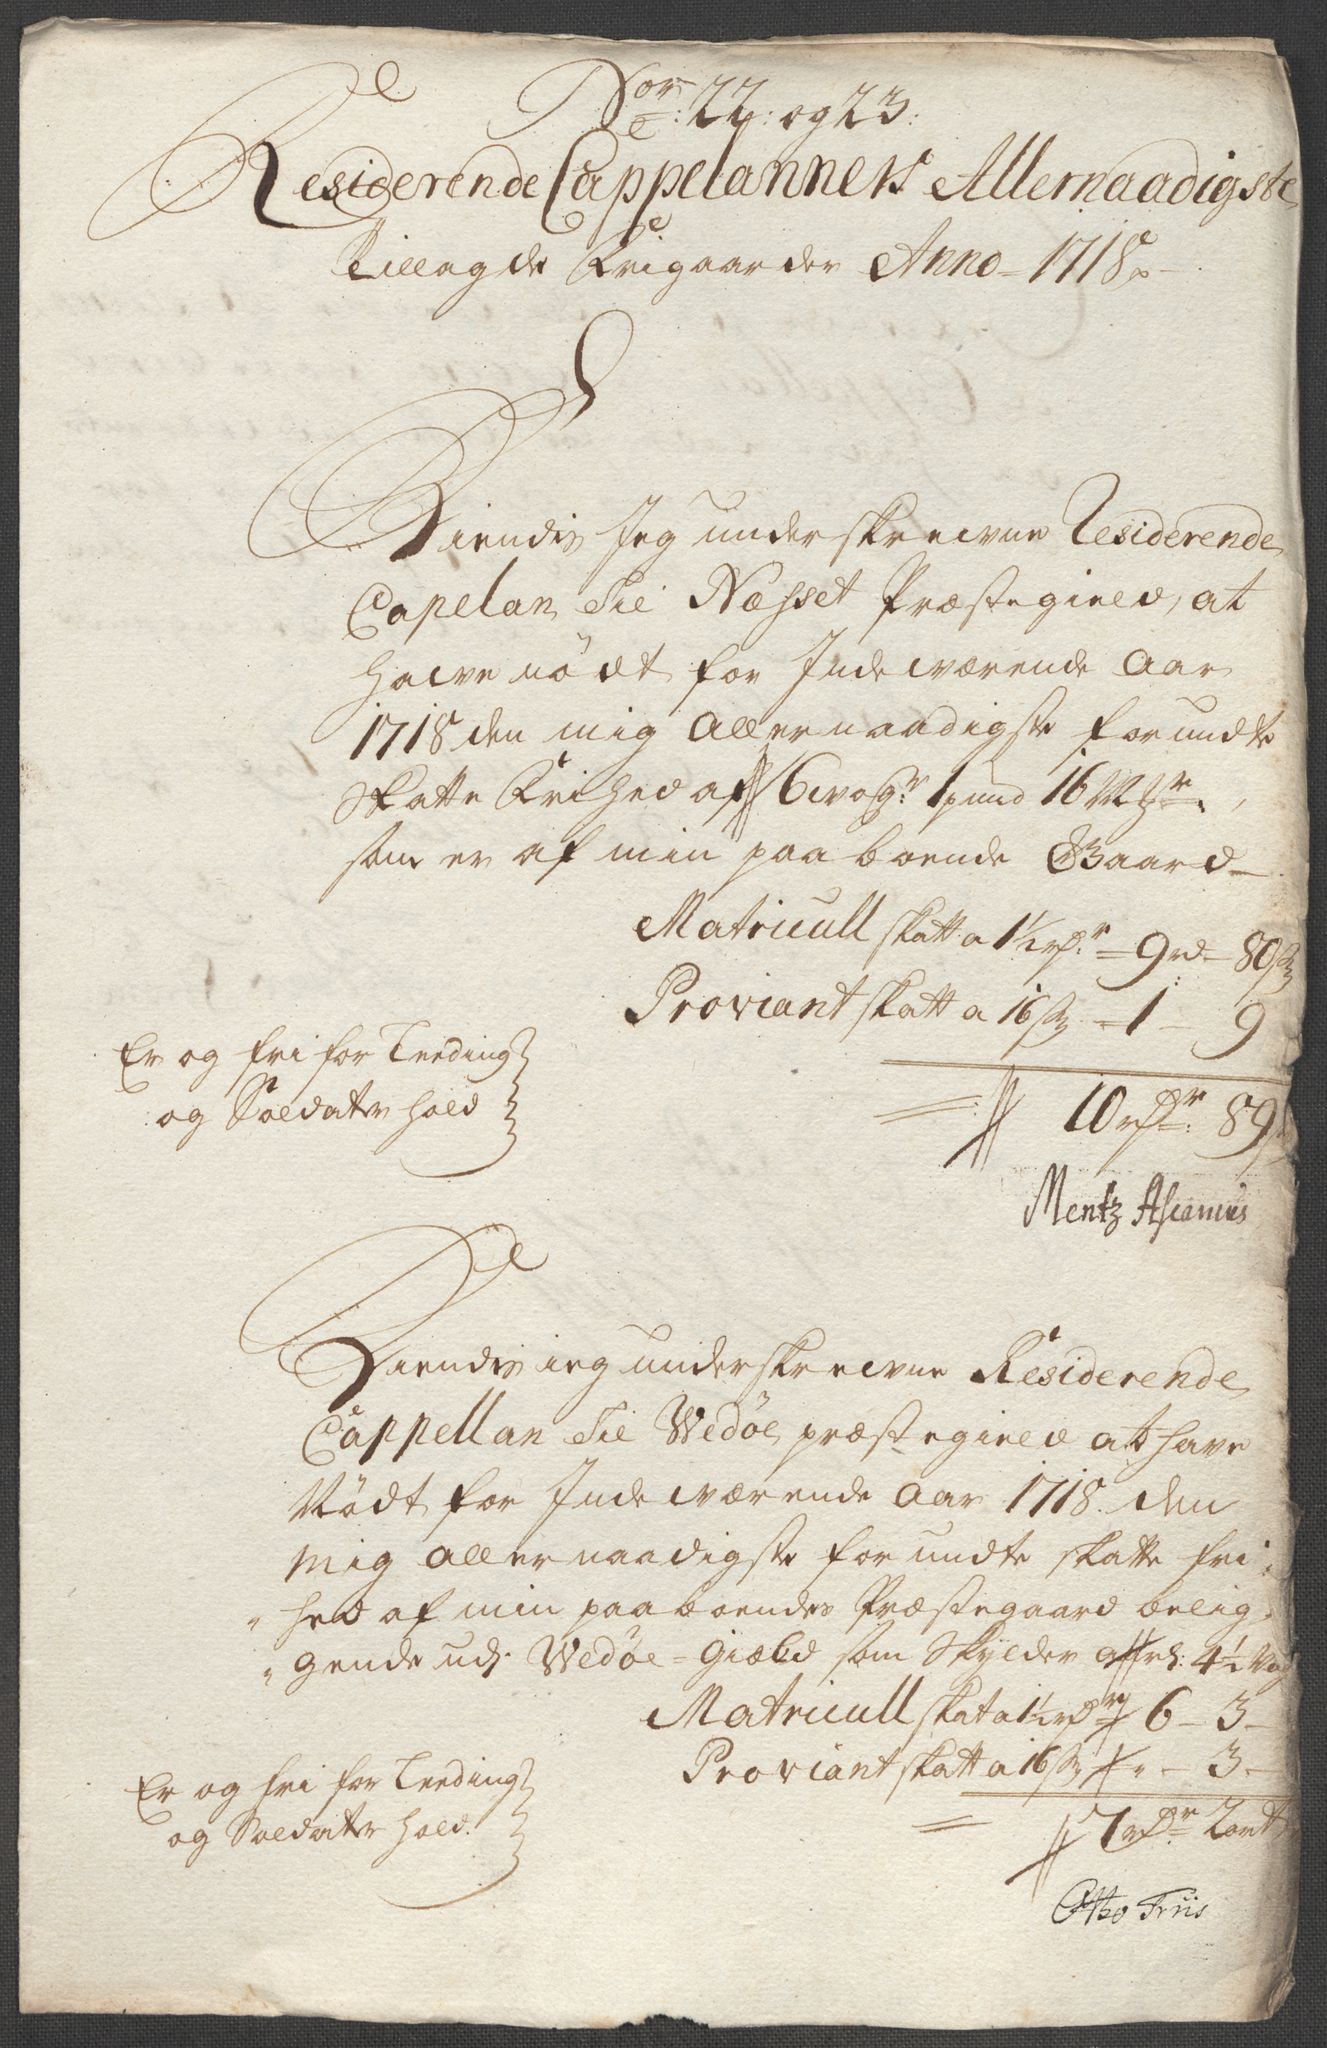 Nor: 22: og 23:
Residerende Cappelanners Allernaadigste
Tillagde Frigaarder Anno 1718
Kiendis Jeg underskrevne Residerende
Capelan til Næsset Præstegield, at
hawe nödt for Indeværende Aar
1718 den mig Allernaadigste forundte
Skatte Frihed af 6 wog 1 pund 16 Mr
som er af min paa boende Gaard
Matricull skatt a 1½ rdr 9 rd 80 s
Proviant skatt a 16 s 1 9
Er og fri for Leeding
og Soldater hold
10 rdr: 89 s
Mentz Ascanius
Kiendis ieg underskrevne Residerende
Cappellan til Wedöe præstegield at have
Nödt for Indeværende Aar 1718. den
mig allernaadigste forundte skatte fri
hed af min paaboendes Præstegaard belig
gende udj Wedöe Giæld som Skylder 4½ Wog
Matricull skat a 1½ rdr 6 - 3 -
Proviant skatt a 16 s " - 3 -
Er og fri for Leeding
og Soldater hold.
7 rdr 2 ort
Otto Friis